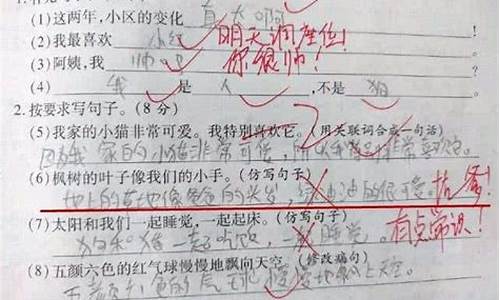 (1)这两年,小区的变化 真大啊
(2)我最喜欢 小红 明天调座位!
(3)阿姨,我 帅吧 你很帅!
(4) 我 是 人 ,不是 狗
2.按要求写句子。(8分)
(5)我家的小猫非常可爱。我特别喜欢它。(用关联词合成一句话)
因为我家的小猫非常可爱,所以我非常喜欢它。
(6)枫树的叶子像我们的小手。(仿写句子)
地上的草地像爸爸的头发,绿油油的很可爱。
(7)太阳和我们一起睡觉,一起起床。(仿写句子)
狗和猪一起吃饭,一起睡觉。 有点常识!
(8)五颜六色的红气球慢慢地飘向天空。(修改病句)
慢慢地飘上天空。